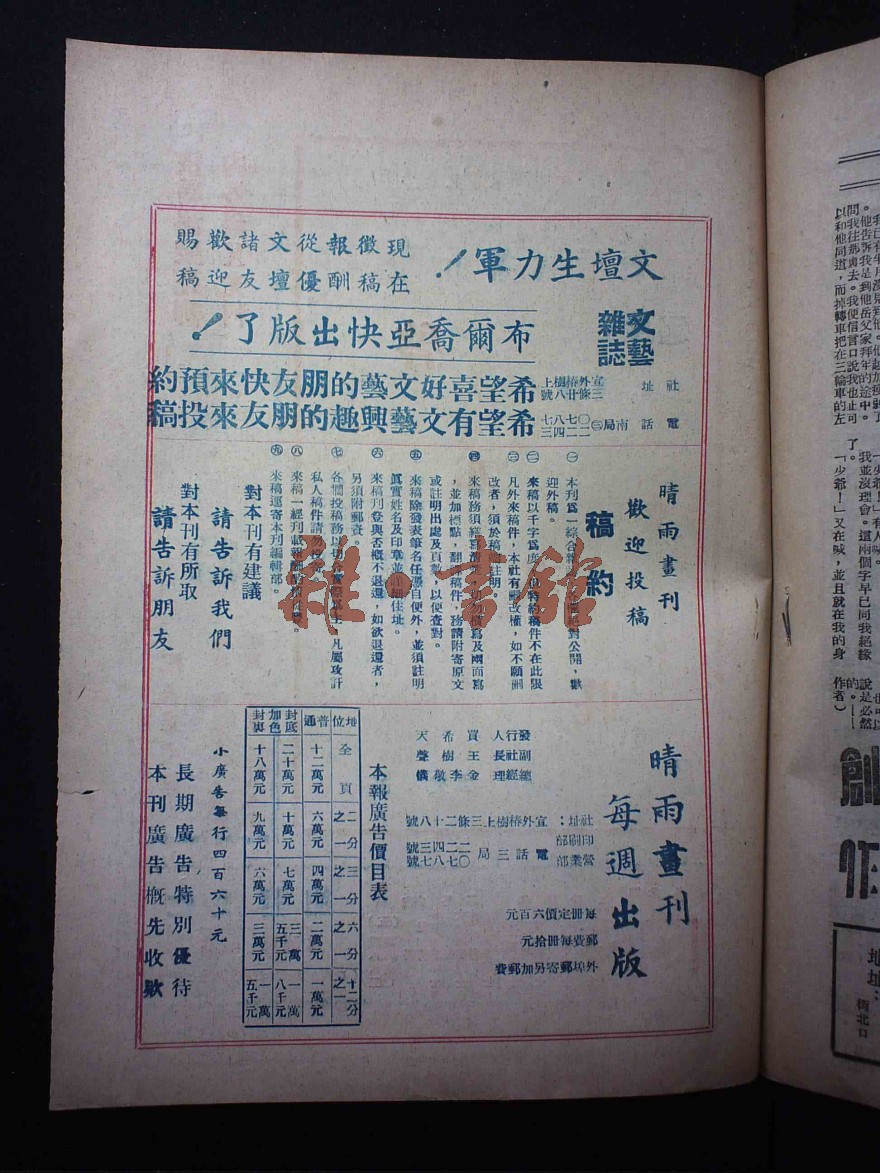 文壇生力軍！
現在
徵稿
報酬
從優
文壇
諸友
歡迎
賜稿
文藝雜誌
布爾喬亞快出版了！
社址 宣外椿樹上三條廿八號
電話 南局㊂
希望喜好文藝的朋友快來預約
希望有文藝興趣的朋友來投稿
晴雨畫刊
歡迎投稿
稿約
㊀ 本刊為一綜合
絕對公開，歡
迎外稿。
㊁ 來稿以千字為度，但特約稿件不在此限
㊂ 凡外來稿件，本社有刪改權，如不願刪
改者，須於稿端註明。
㊃ 來稿務須繕寫清楚，切勿橫寫及兩面寫
，並加標點，翻譯稿件，務請附寄原文
或註明出處及頁數，以便查對。
㊄ 來稿除發表筆名任憑自便外，並須註明
真實姓名及印章並詳細住址。
㊅ 來稿刊登與否概不退還，如欲退還者，
另須附郵資。
㊆ 各欄投稿務以切合實際為主，凡屬攻訐
私人稿件請勿投來。
㊇ 來稿一經刊載報酬
㊈ 來稿逕寄本刊編輯部。
對本刊有建議
請告訴我們
對本刊有所取
請告訴朋友
晴雨畫刊
每週出版
發行人 買希天
副社長 王樹聲
總經理 金李敬儀
社址：宣外椿樹上三條二十八號
印刷部
營業部
電話三局
每冊定價六百元
郵費每冊拾元
外埠郵寄另加郵費
本報廣告價目表
地位 全頁 二分之一 三分之一 六分之一 十二分之一
普通 十二萬元 六萬元 四萬元 二萬元 一萬元
封底加色 二十萬元 十萬元 七萬元 三萬五千元 一萬八千元
封裏 十八萬元 九萬元 六萬元 三萬元 一萬五千元
小廣告每行四百六十元
長期廣告特別優待
本刊廣告概先收款
雜·書館
問我往那裏去。我便信口說我也止可
以和他同道，而掉轉車把在三輪車的左
我並沒理會。這兩個字早已同我絕緣
了。
「少爺！」又在喊，並且就在我的身
說是必然
的。——
作者）
創作
地址：
街北口